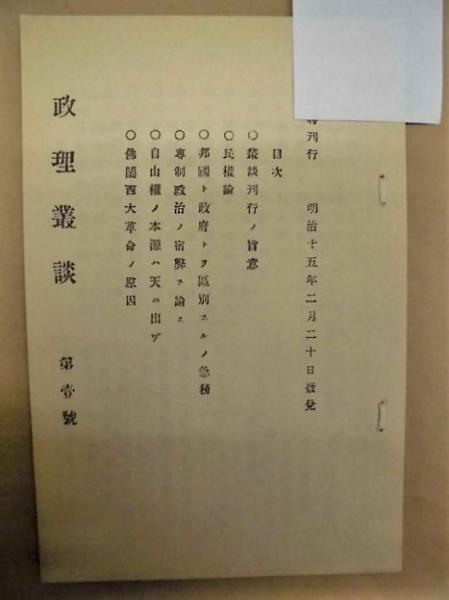 刊行 明治十五年二月二十日發兌
目次
○叢談刊行ノ旨意
○民權論
○邦國ト政府トヲ區別スルノ急務
○專制政治ノ宿弊ヲ論ス
○自由權ノ本源ハ天ニ出ヅ
○佛蘭西大革命ノ原因
政理叢談 第壹號